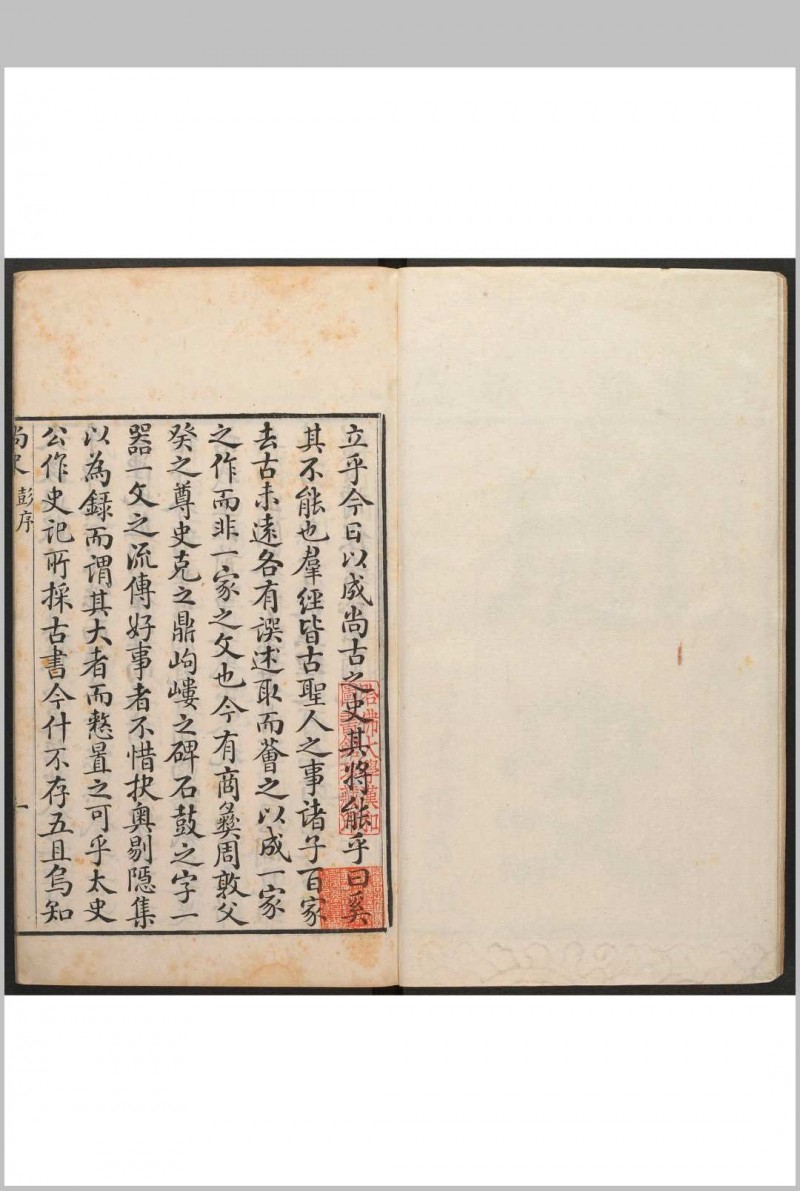 立乎今日以成尚古之史其將能乎曰奚
其不能也羣經皆古聖人之事諸子百家
去古未遠各有譔述取而薈之以成一家
之作而非一家之文也今有商彝周敦父
癸之尊史克之鼎岣嶁之碑石鼓之字一
器一文之流傳好事者不惜抉奥剔隱集
以為錄而謂其大者而憗置之可乎太史
公作史记所採古書今什不存五且烏知
尚史 彭序 一
哈佛大學漢和
圖書館